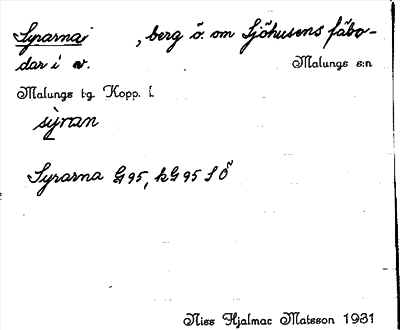 Syrarna, berg ö. om Sjöhusens fäbo-
dar i v. Malungs s:n
Malungs tg. Kopp. l.
sỳran
Syrarna G95, kG95 S Ö
Niss Hjalmar Matsson 1931